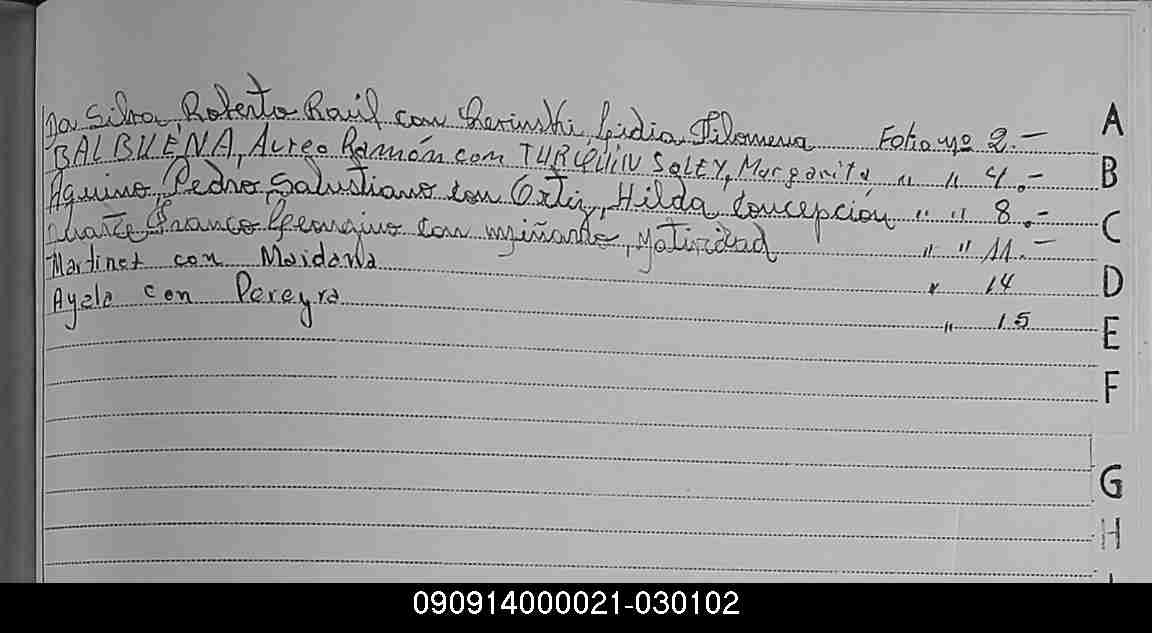 Da Silva Roberto Raúl con Lidia Filomena Folio nº 2.-
BALBUENA, Aureo Ramón con TURQUIN SOLEY, Margarita, " " 4.-
Aquino, Pedro Salustiano con Ortiz, Hilda Concepcion " " 8.-
Duarte Franco con Natividad " " 11.-
Martinez con Maidana " 14
Ayala con Pereyra " 15
A
B
C
D
E
F
G
H
090914000021-030102